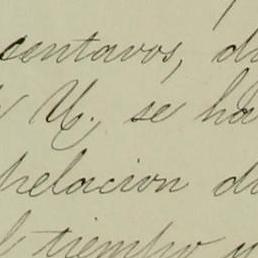 centavos, d
U., se ha
pelacion d
l tiempo y